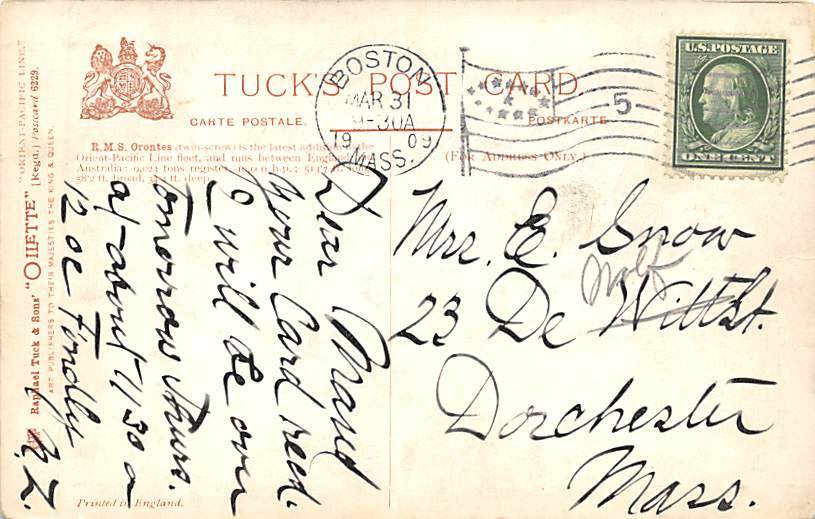 TUCK'S POST CARD.
CARTE POSTALE.
POSTKARTE
(FOR ADDRESS ONLY.)
R.M.S. Orontes (twin-screw) is the latest addition the
Orient-Pacific Line fleet, and runs between England
Australia: 9,023 tons register,
58'2 ft. broad, ft. deep.
BOSTON
MAR 31
9-30A
1909
MASS.
5
U.S. POSTAGE
ONE CENT
Raphael Tuck & Sons' "OILETTE" [Regd.] Postcard 6229.
"ORIENT-PACIFIC LINE."
ART PUBLISHERS TO THEIR MAJESTIES THE KING & QUEEN.
Dear Maud
your Card recd.
I will be over
tomorrow Thurs.
at about 11 30 a
12 oc
Mrs. E. Snow
23 De Wolf Witt St.
Dorchester
Mass.
Printed in England.